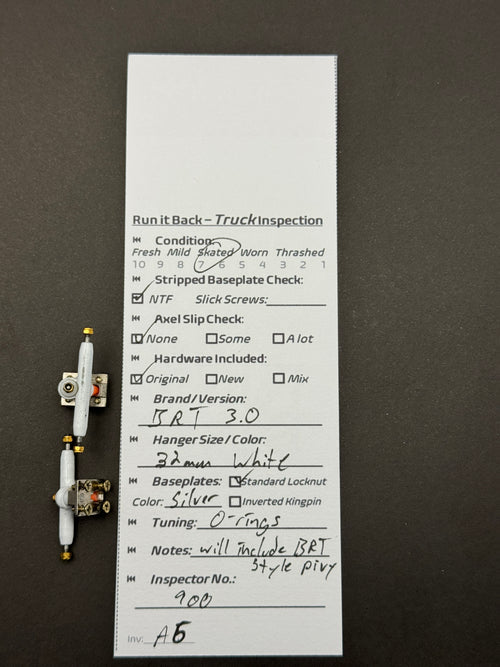 Run it Back – Truck Inspection
Condition:
Fresh Mild Skated Worn Thrashed
10 9 8 7 6 5 4 3 2 1
Stripped Baseplate Check:
NTF Slick Screws:
Axel Slip Check:
None Some A lot
Hardware Included:
Original New Mix
Brand / Version:
BRT 3.0
Hanger Size / Color:
32mm White
Baseplates: Standard Locknut
Color: Silver Inverted Kingpin
Tuning: O-rings
Notes: will include BRT
style pivy
Inspector No.:
900
Inv: A6